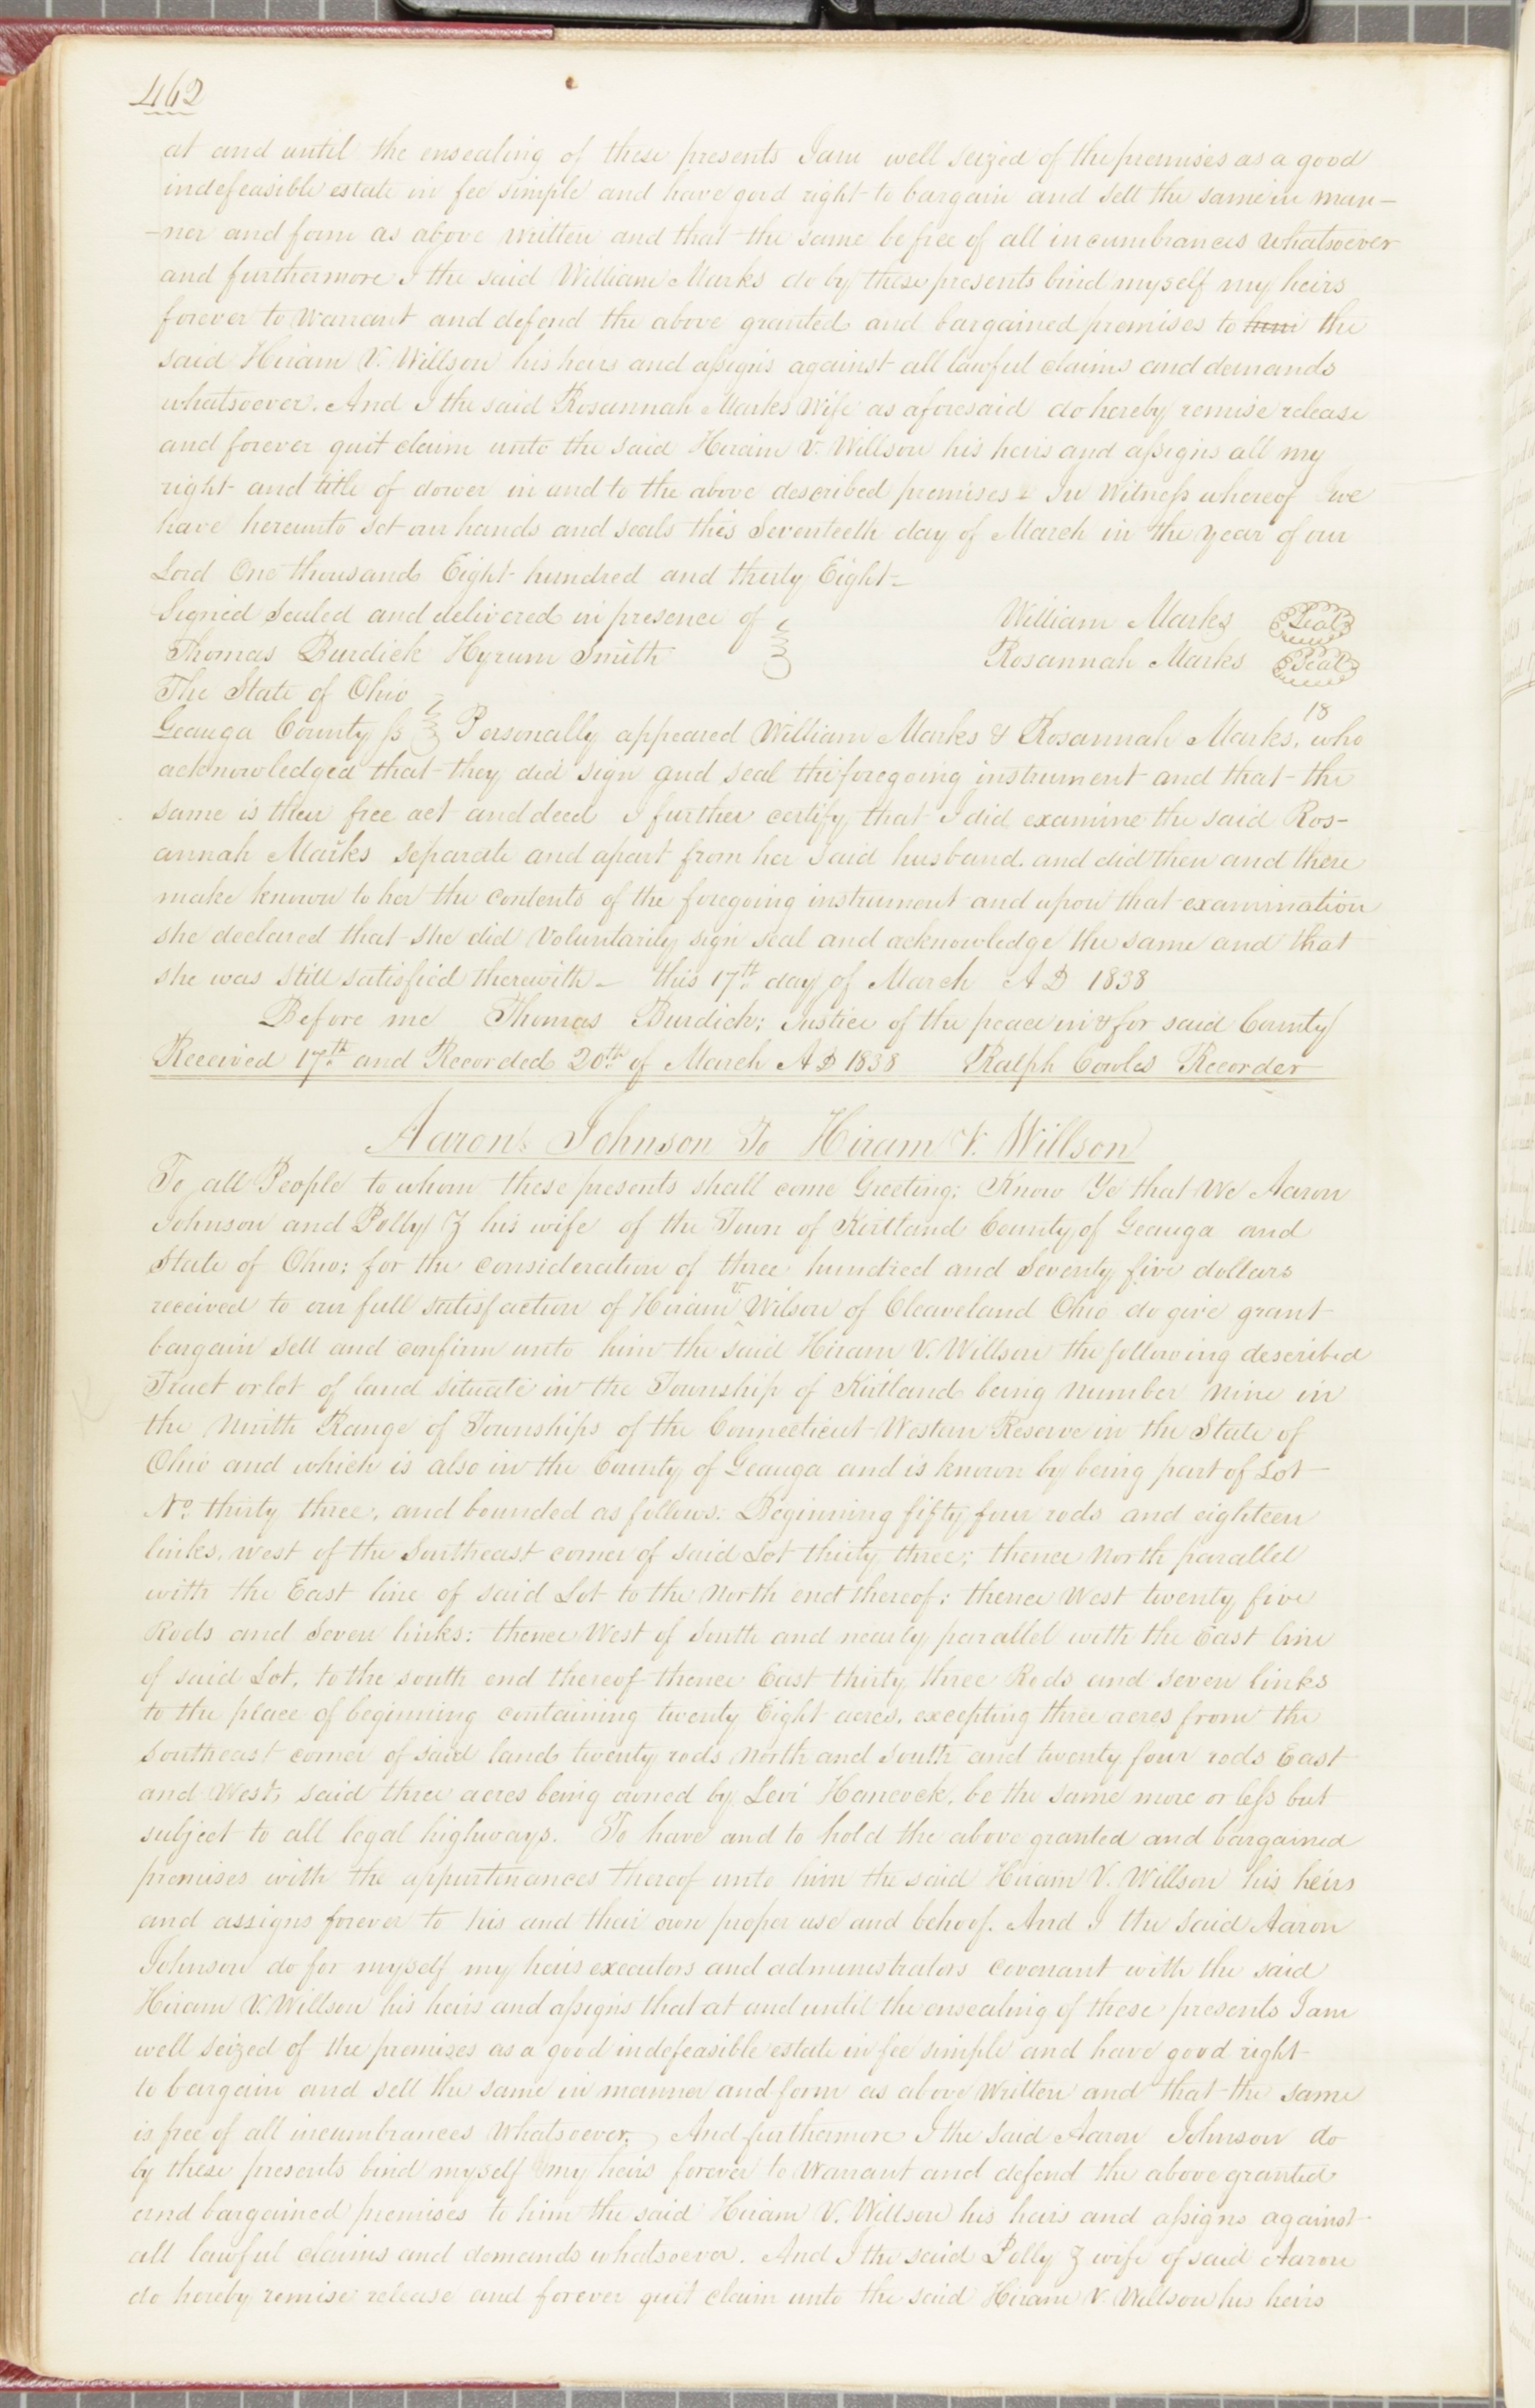 462
at and until the ensealing of these presents I am well seized of the premises as a good
indefeasible estate in fee simple and have good right to bargain and sell the same in man-
-ner and form as above written and that the same be free of all incumbrances whatsoever
and furthermore I the said William Marks do by these presents bind myself my heirs
forever to Warrant and defend the above granted and bargained premises to him the
said Hiram V. Willson his heirs and assigns against all lawful claims and demands
whatsoever. And I the said Rosannah Marks Wife as aforesaid do hereby remise release
and forever quit claim unto the said Hiram V. Willson his heirs and assigns all my
right and title of dower in and to the above described premises - In Witness whereof we
have hereunto set our hands and seals this Seventeeth day of March in the year of our
Lord One thousand Eight hundred and thirty Eight-
Signed Sealed and delivered in presence of William Marks Seal
Thomas Burdick Hyrum Smith Rosannah Marks Seal
The State of Ohio
18
Geauga County ss Personally appeared William Marks & Rosannah Marks, who
acknowledged that they did sign and seal the foregoing instrument and that the
same is their free act and deed I further certify that I did examine the said Ros-
annah Marks separate and apart from her said husband. and did then and there
make known to her the contents of the foregoing instrument and upon that examination
she declared that she did Voluntarily sign seal and acknowledge the same and that
she was still satisfied therewith - this 17th day of March A D 1838
Before me Thomas Burdick; Justice of the peace in & for said County
Received 17th and Recorded 20th of March A D 1838 Ralph Cowles Recorder
Aaron Johnson To Hiram V. Willson
To all People to whom these presents shall come Greeting; Know Ye that We Aaron
Johnson and Polly Z his wife of the Town of Kirtland County of Geauga and
State of Ohio; for the consideration of three hundred and Seventy five dollars
received to our full satisfaction of Hiram V Wilson of Cleaveland Ohio do give grant
bargain sell and confirm unto him the said Hiram V. Willson the following described
Tract or lot of land situate in the Township of Kirtland being number nine in
the Ninth Range of Townships of the Connecticut Western Reserve in the State of
Ohio and which is also in the County of Geauga and is known by being part of Lot
No. thirty three, and bounded as follows: Beginning fifty four rods and eighteen
links, west of the Southeast corner of said Lot thirty three; thence North parallel
with the East line of said Lot to the North end thereof; thence West twenty five
Rods and Seven links; thence West of South and nearly parallel with the East line
of said Lot, to the south end thereof thence East thirty three Rods and seven links
to the place of beginning containing twenty Eight acres, excepting three acres from the
Southeast corner of said land twenty rods North and South and twenty four rods East
and West, said three acres being owned by Levi Hancock, be the same more or less but
subject to all legal highways. To have and to hold the above granted and bargained
premises with the appurtenances thereof unto him the said Hiram V. Willson his heirs
and assigns forever to his and their own proper use and behoof. And I the said Aaron
Johnson do for myself my heirs executors and administrators covenant with the said
Hiram V. Willson his heirs and assigns that at and until the ensealing of these presents I am
well seized of the premises as a good indefeasible estate in fee simple and have good right
to bargain and sell the same in manner and form as above Written and that the same
is free of all incumbrances Whatsoever, And furthermore I the said Aaron Johnson do
by these presents bind myself my heirs forever to Warrant and defend the above granted
and bargained premises to him the said Hiram V. Willson his heirs and assigns against
all lawful claims and demands whatsoever. And I the said Polly Z wife of said Aaron
do hereby remise release and forever quit claim unto the said Hiram V. Willson his heirs